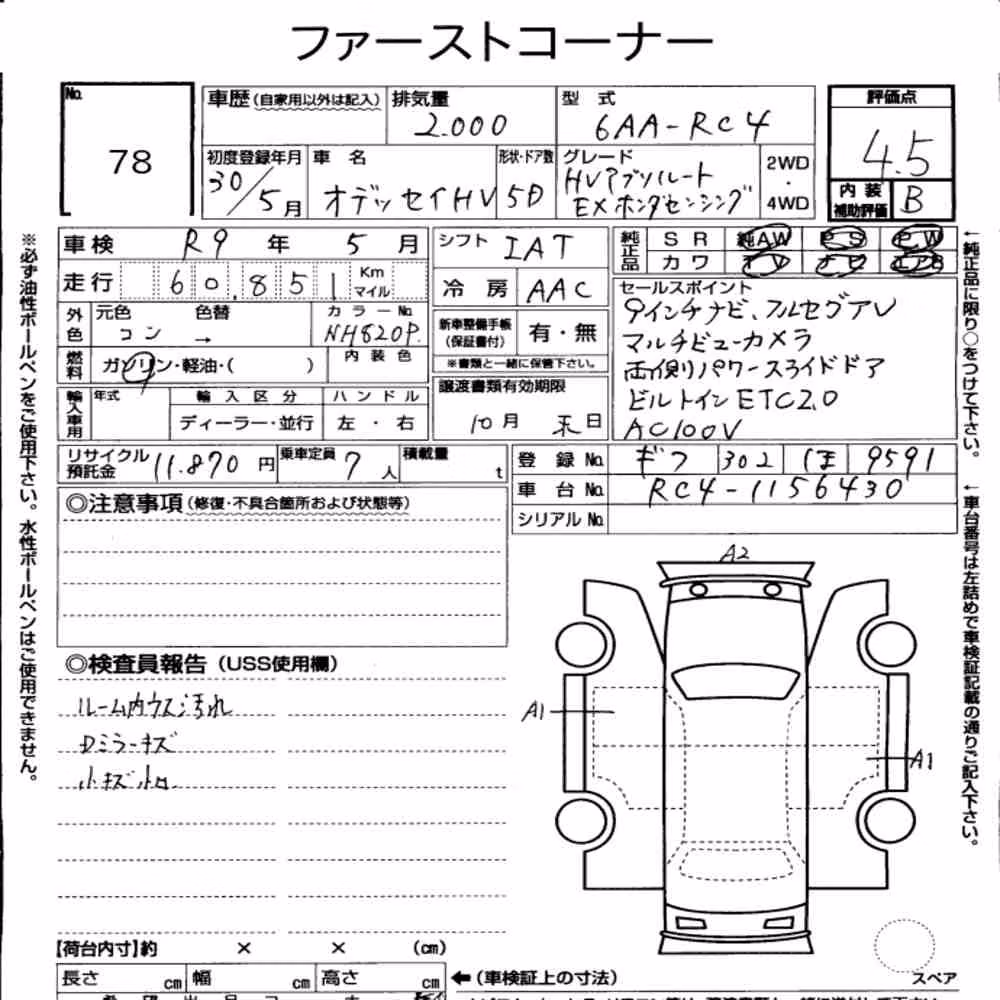 ファーストコーナー
No. 78
車歴(自家用以外は記入) 排気量 2.000 型式 6AA-RC4
評価点 4.5
内装補助評価 B
初度登録年月 30/5月 車名 オデッセイHV 形状・ドア数 5D グレード HVアブソルート EXホンダセンシング 2WD・4WD
車検 R9年 5月
走行 60.851 Km マイル
外色 元色 コン 色替 → カラーNo. NH820P.
燃料 ガソリン・軽油・( ) 内装色
輸入車用 年式 輸入区分 ディーラー・並行 ハンドル 左・右
シフト IAT
冷房 AAC
新車整備手帳(保証書付) 有・無
※書類と一緒に保管下さい。
譲渡書類有効期限
10月 末日
純正品 SR 純AW PS PW
カワ TV ナビ エアB
セールスポイント
9インチナビ、フルセグAV
マルチビューカメラ
両側パワースライドドア
ビルトインETC2.0
AC100V
リサイクル預託金 11.870円 乗車定員 7人 積載量 t
登録No. ギフ 302 ほ 9591
車台No. RC4-1156430
シリアルNo.
◎注意事項(修復・不具合箇所および状態等)
◎検査員報告(USS使用欄)
ルーム内ウス汚れ
Dミラーキズ
小キズ小凹
A2
A1
A1
スペア
【荷台内寸】約 × × (cm)
長さ cm 幅 cm 高さ cm ←(車検証上の寸法)
※必ず油性ボールペンをご使用下さい。水性ボールペンはご使用できません。
←純正品に限り○をつけて下さい。
←車台番号は左詰めで車検証記載の通りご記入下さい。